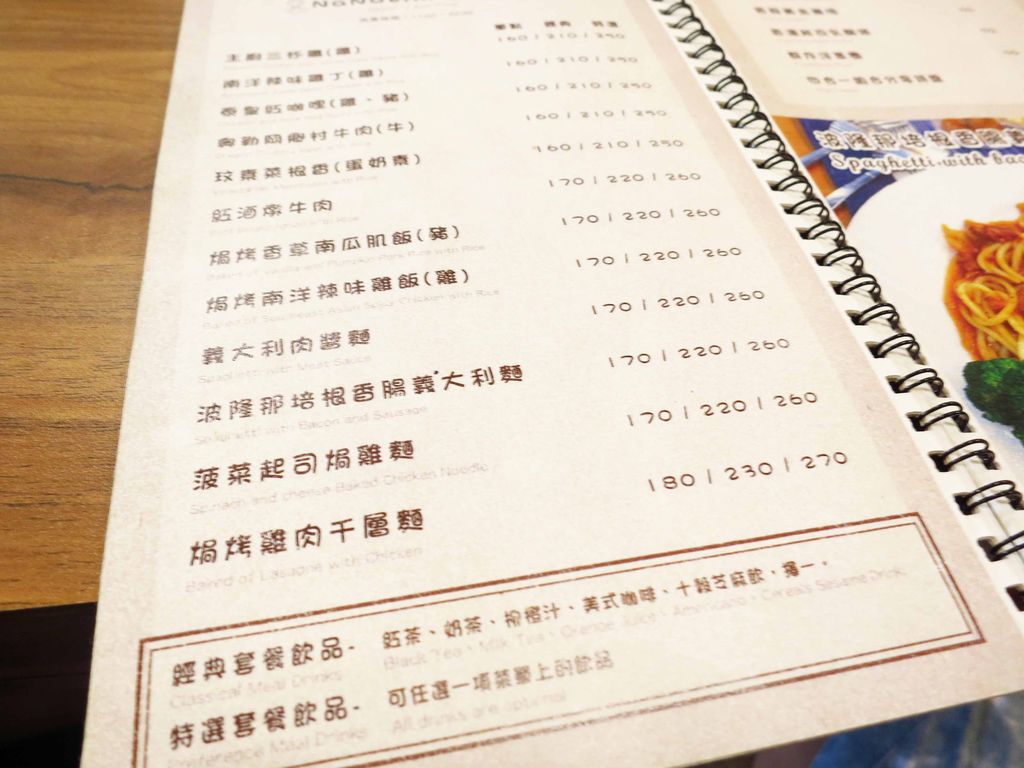 單點 經典 特選
主廚三杯雞(雞) 160/210/250
南洋辣味雞丁(雞) 160/210/250
泰皇紅咖哩(雞、豬) 160/210/250
奧勒岡鄉村牛肉(牛) 160/210/250
玟素菜根香(蛋奶素) 160/210/250
紅酒燉牛肉 170/220/260
焗烤香草南瓜肌飯(豬) 170/220/260
焗烤南洋辣味雞飯(雞) 170/220/260
Baked of Southeast Asian Spicy Chicken with Rice
義大利肉醬麵 170/220/260
Spaghetti with Meat Sauce
波隆那培根香腸義大利麵 170/220/260
Spaghetti with Bacon and Sausage
菠菜起司焗雞麵 170/220/260
Spinach and cheese Baked Chicken Noodle
焗烤雞肉千層麵 180/230/270
Baked of Lasagne with Chicken
經典套餐飲品- 紅茶、奶茶、柳橙汁、美式咖啡、十穀芝麻飲,擇一。
Classical Meal Drinks Black Tea、Milk Tea、Orange Juice、Americano、Cereals Sesame Drink
特選套餐飲品- 可任選一項菜單上的飲品
Preference Meal Drinks All drinks are optional
波隆那培根香腸義
Spaghetti with bac